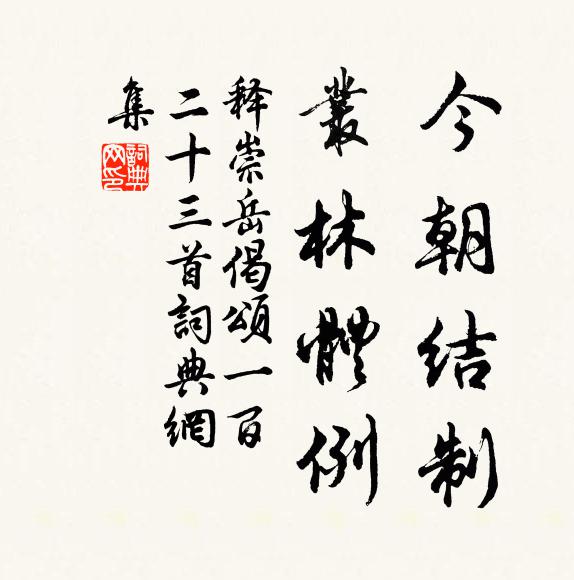 今朝结制
叢林體例
释崇岳偈頌一百
二十三首詞典網
集
詞典網印